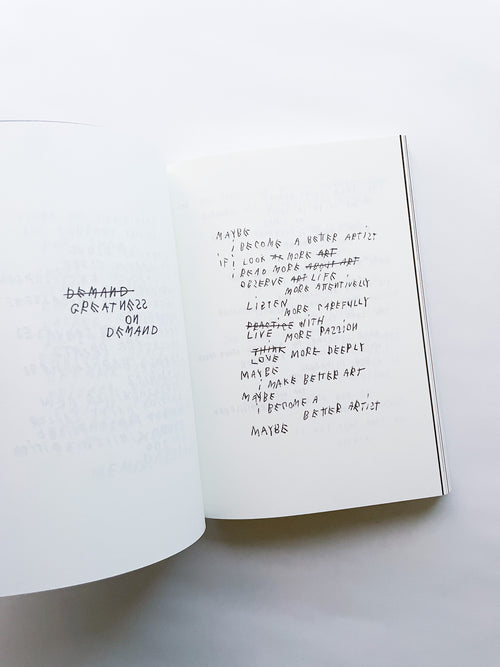 DEMAND
GREATNESS
ON
DEMAND
MAYBE
i BECOME A BETTER ARTIST
iF i LOOK AT MORE ART
i READ MORE ABOUT ART
OBSERVE ART LIFE
MORE ATTENTIVELY
LISTEN
MORE CAREFULLY
PRACTICE WITH
LIVE MORE PASSION
THINK
LOVE MORE DEEPLY
MAYBE
i MAKE BETTER ART
MAYBE
i BECOME A
BETTER ARTIST
MAYBE